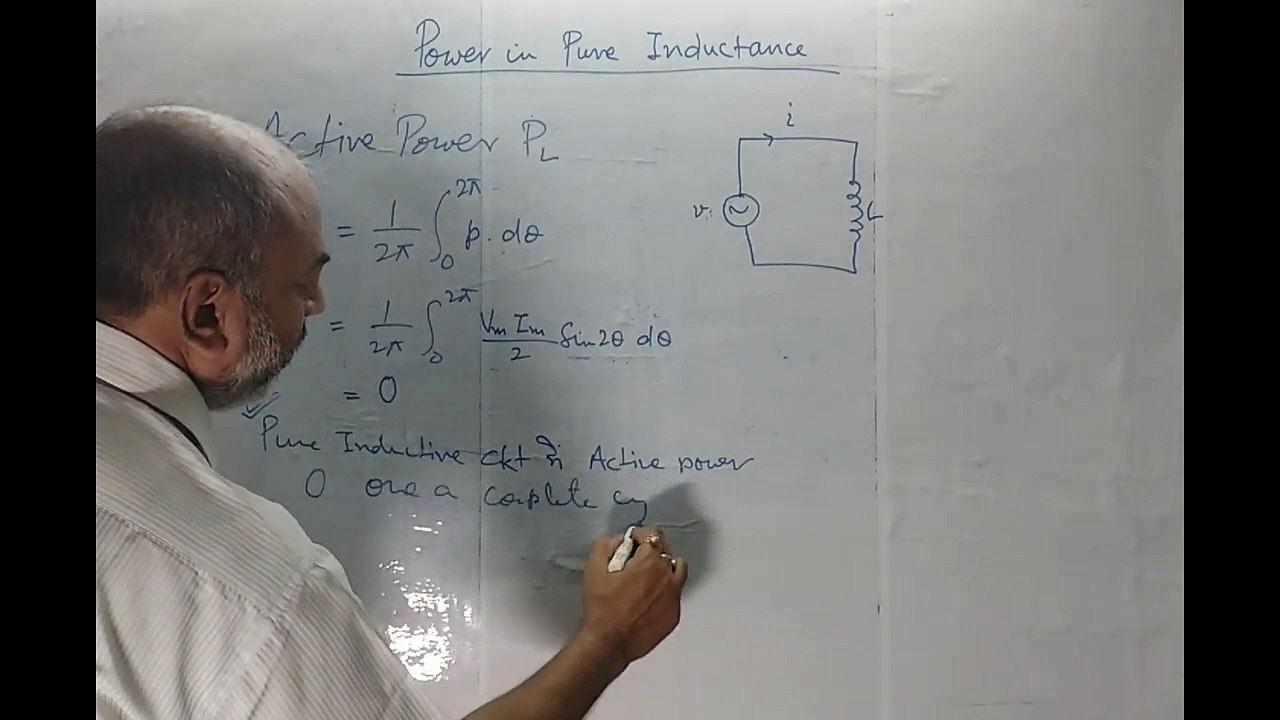 Power in Pure Inductance
Active Power P_L
= 1/2π ∫₀^2π p. dθ
= 1/2π ∫₀^2π VmIm/2 Sin2θ dθ
= 0
Pure Inductive ckt में Active power
0 over a complete cy
i
v
L